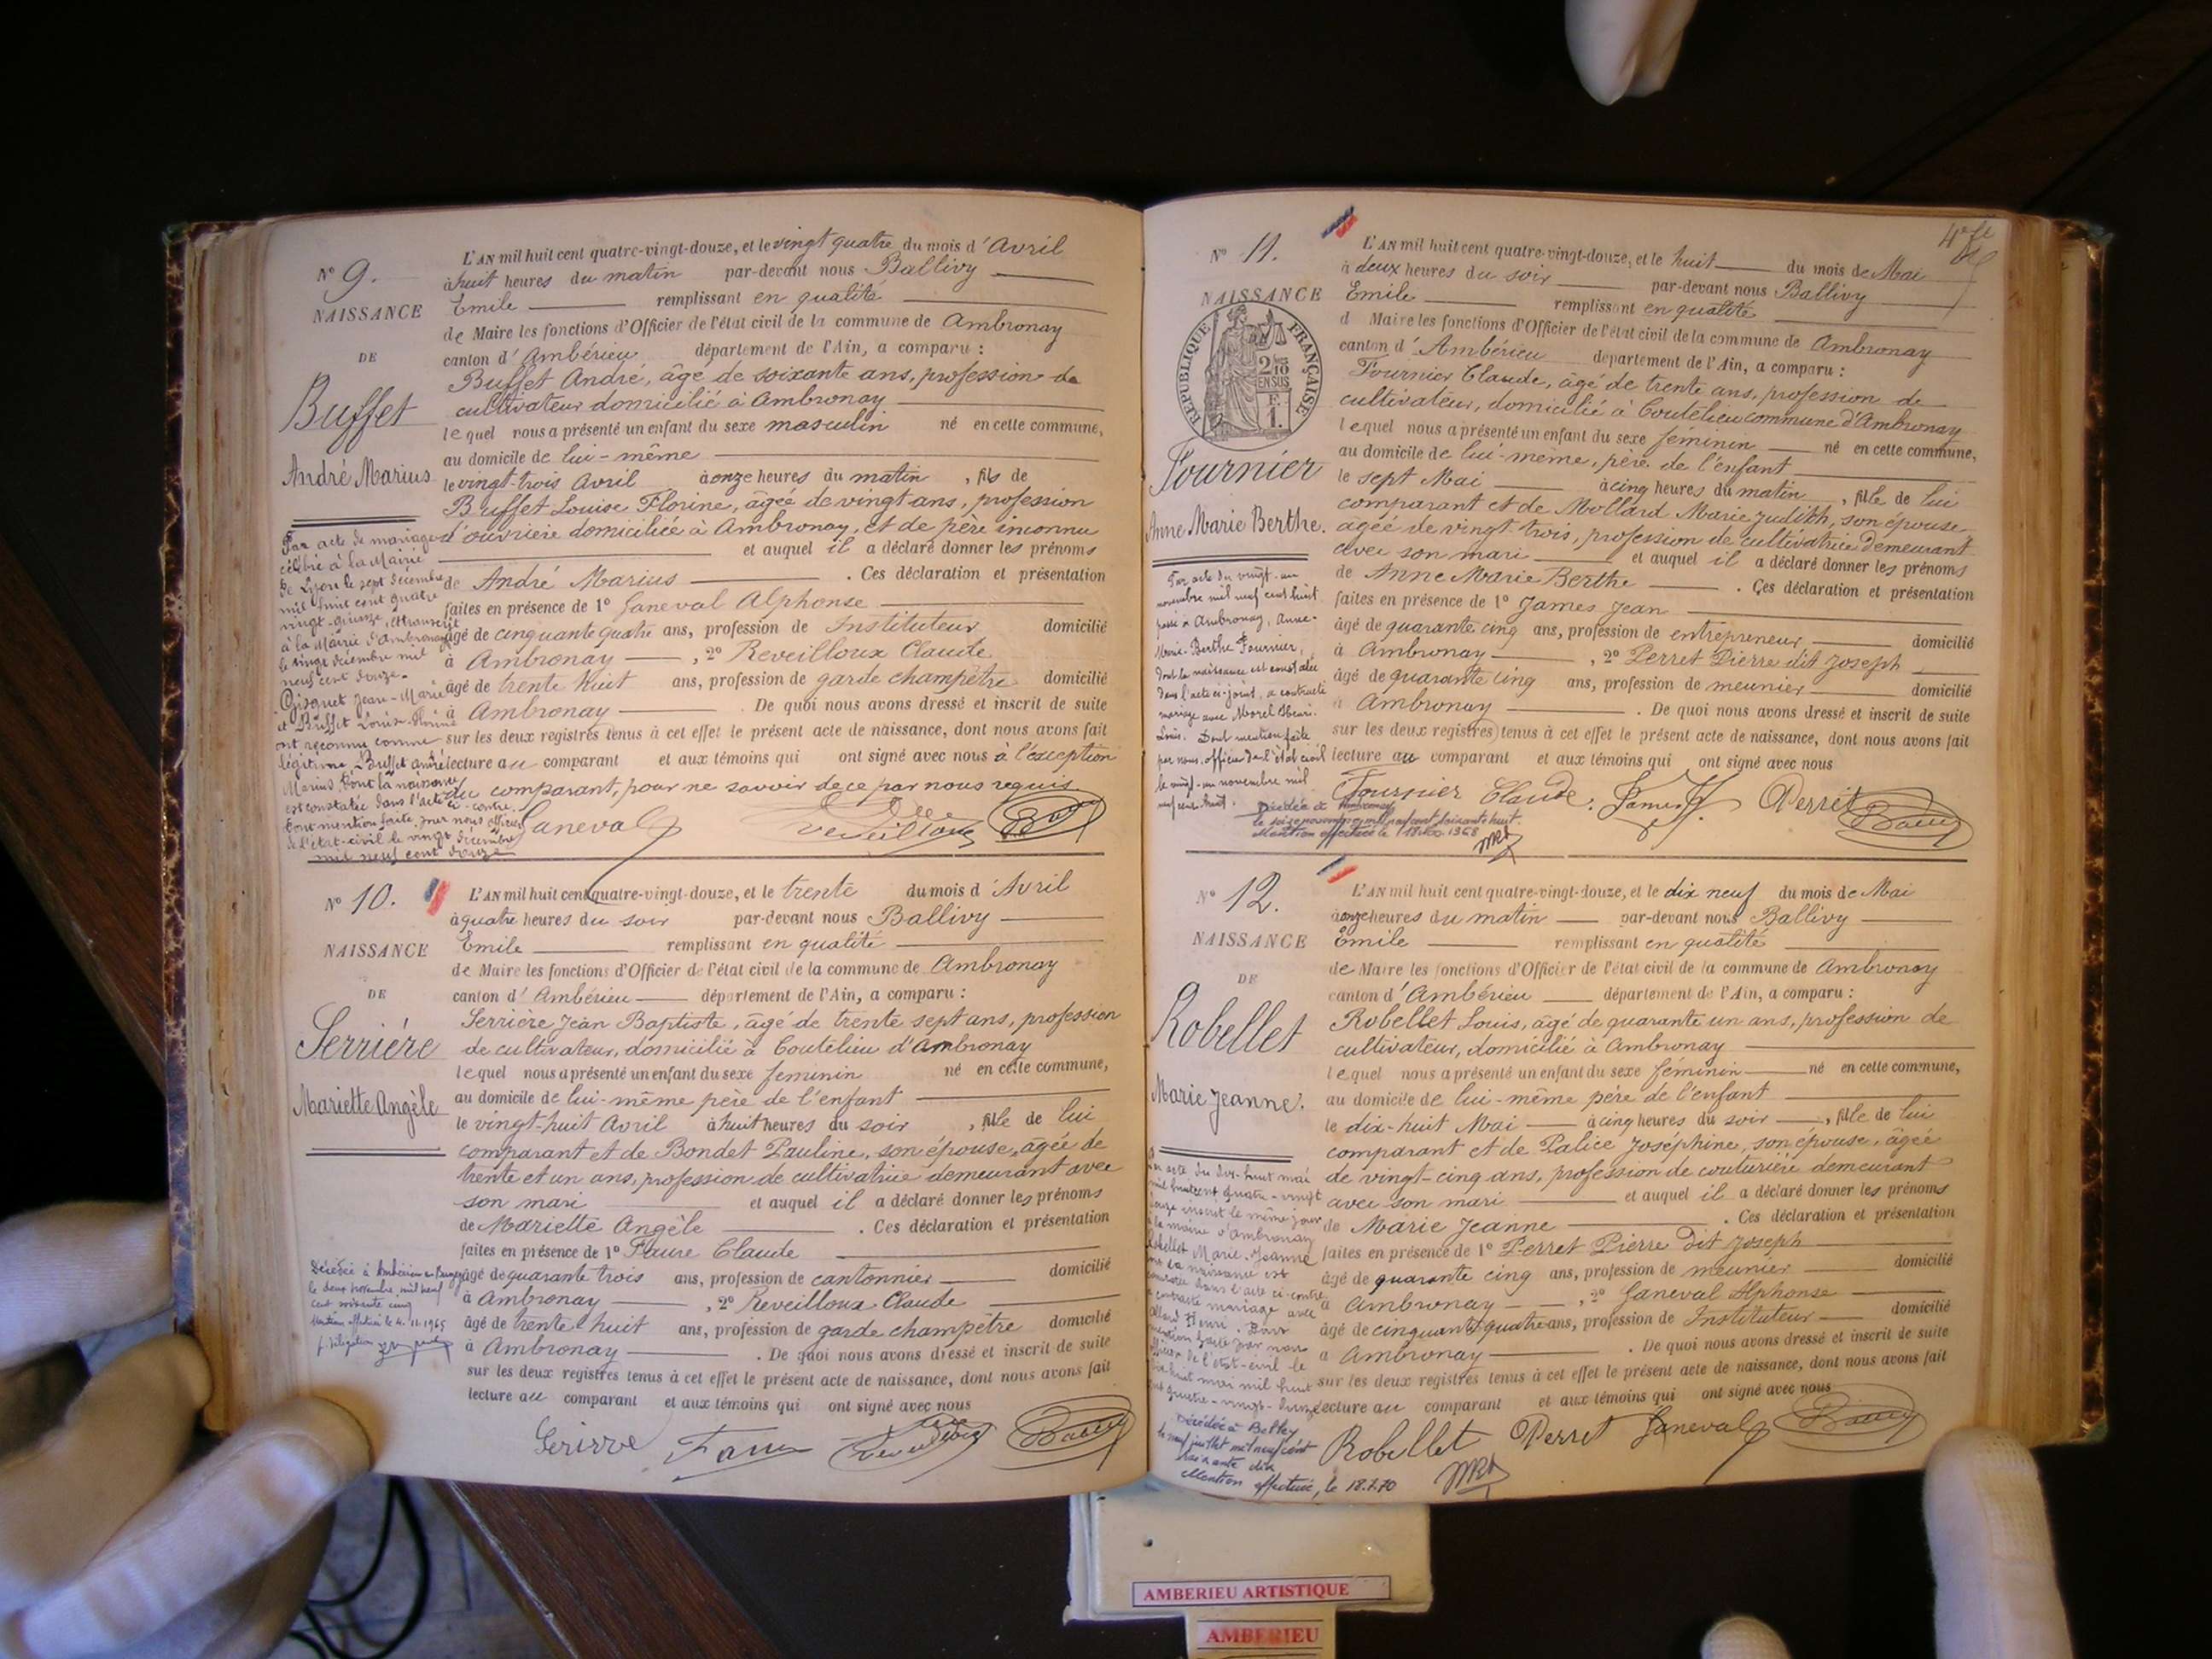 N° 9.
NAISSANCE
DE
Buffet
André Marius
L'AN mil huit cent quatre-vingt-douze, et le vingt quatre du mois d'Avril
à huit heures du matin par-devant nous Ballivy
Emile remplissant en qualité
de Maire les fonctions d'Officier de l'état civil de la commune de Ambronay
canton d'Ambérieu département de l'Ain, a comparu :
Buffet André, âgé de soixante ans, profession de
cultivateur domicilié à Ambronay
lequel nous a présenté un enfant du sexe masculin né en cette commune,
au domicile de lui-même
le vingt-trois Avril à onze heures du matin, fils de
Buffet Louise Florine, âgée de vingt ans, profession
d'ouvrière domiciliée à Ambronay, et de père inconnu
et auquel il a déclaré donner les prénoms
de André Marius. Ces déclaration et présentation
faites en présence de 1° Janeval Alphonse
âgé de cinquante quatre ans, profession de Instituteur domicilié
à Ambronay, 2° Reveilloux Claude
âgé de trente huit ans, profession de garde champêtre domicilié
à Ambronay. De quoi nous avons dressé et inscrit de suite
sur les deux registres tenus à cet effet le présent acte de naissance, dont nous avons fait
lecture au comparant et aux témoins qui ont signé avec nous à l'exception
du comparant, pour ne savoir de ce par nous requis
Janeval
Par acte de mariage
célébré à la Mairie
de Lyon le sept décembre
mil huit cent quatre
vingt-quinze,
à la Mairie d'Ambronay
le vingt décembre mil
neuf cent douze.
Jean-Marie
et Buffet Louise-Florine
ont reconnu comme
légitime, Buffet André
Marius, dont la naissance
est constatée dans l'acte ci-contre.
Dont mention faite par nous officier
de l'état-civil le vingt décembre
mil neuf cent douze
N° 10.
NAISSANCE
DE
Serriére
Mariette Angèle
L'AN mil huit cent quatre-vingt-douze, et le trente du mois d'Avril
à quatre heures du soir par-devant nous Ballivy
Emile remplissant en qualité
de Maire les fonctions d'Officier de l'état civil de la commune de Ambronay
canton d'Ambérieu département de l'Ain, a comparu :
Serrière Jean Baptiste, âgé de trente sept ans, profession
de cultivateur, domicilié à Coutelieu d'Ambronay
lequel nous a présenté un enfant du sexe féminin né en cette commune,
au domicile de lui-même père de l'enfant
le vingt-huit Avril à huit heures du soir, fille de lui
comparant et de Bondet Pauline, son épouse, âgée de
trente et un ans, profession de cultivatrice demeurant avec
son mari et auquel il a déclaré donner les prénoms
de Mariette Angèle. Ces déclaration et présentation
faites en présence de 1° Faure Claude
âgé de quarante trois ans, profession de cantonnier domicilié
à Ambronay, 2° Reveilloux Claude
âgé de trente huit ans, profession de garde champêtre domicilié
à Ambronay. De quoi nous avons dressé et inscrit de suite
sur les deux registres tenus à cet effet le présent acte de naissance, dont nous avons fait
lecture au comparant et aux témoins qui ont signé avec nous
Décédée à Ambérieu en Bugey
le deux novembre mil neuf
cent soixante cinq
Mention effectuée le 4.11.1965
p. délégation
4e
N° 11.
NAISSANCE
RÉPUBLIQUE FRANÇAISE
2/10
EN SUS
F.
1.
Fournier
Anne Marie Berthe.
L'AN mil huit cent quatre-vingt-douze, et le huit du mois de Mai
à deux heures du soir par-devant nous Ballivy
Emile remplissant en qualité
d Maire les fonctions d'Officier de l'état civil de la commune de Ambronay
canton d'Ambérieu département de l'Ain, a comparu :
Fournier Claude, âgé de trente ans, profession de
cultivateur, domicilié à Coutelieu commune d'Ambronay
lequel nous a présenté un enfant du sexe féminin né en cette commune,
au domicile de lui-même, père de l'enfant
le sept Mai à cinq heures du matin, fille de lui
comparant et de Mollard Marie Judith, son épouse
âgée de vingt trois, profession de cultivatrice demeurant
avec son mari et auquel il a déclaré donner les prénoms
de Anne Marie Berthe. Ces déclaration et présentation
faites en présence de 1° James Jean
âgé de quarante cinq ans, profession de entrepreneur domicilié
à Ambronay, 2° Perret Pierre dit Joseph
âgé de quarante cinq ans, profession de meunier domicilié
à Ambronay. De quoi nous avons dressé et inscrit de suite
sur les deux registres tenus à cet effet le présent acte de naissance, dont nous avons fait
lecture au comparant et aux témoins qui ont signé avec nous
Fournier Claude. James Perret
Par acte du vingt-un
novembre mil neuf cent huit
passé à Ambronay, Anne-
Marie-Berthe Fournier,
dont la naissance est constatée
dans l'acte ci-joint, a contracté
mariage avec Morel Henri-
Louis. Dont mention faite
par nous, officier de l'état civil
le vingt-un novembre mil
neuf cent huit.
Décédée à Ambronay
le seize mil neuf cent soixante huit.
Mention effectuée le 1968
N° 12.
NAISSANCE
DE
Robellet
Marie Jeanne.
L'AN mil huit cent quatre-vingt-douze, et le dix neuf du mois de Mai
à onze heures du matin par-devant nous Ballivy
Emile remplissant en qualité
de Maire les fonctions d'Officier de l'état civil de la commune de Ambronay
canton d'Ambérieu département de l'Ain, a comparu :
Robellet Louis, âgé de quarante un ans, profession de
cultivateur, domicilié à Ambronay
lequel nous a présenté un enfant du sexe féminin né en cette commune,
au domicile de lui-même père de l'enfant
le dix-huit Mai à cinq heures du soir, fille de lui
comparant et de Palice Joséphine, son épouse, âgée
de vingt-cinq ans, profession de couturière demeurant
avec son mari et auquel il a déclaré donner les prénoms
de Marie Jeanne. Ces déclaration et présentation
faites en présence de 1° Perret Pierre dit Joseph
âgé de quarante cinq ans, profession de meunier domicilié
à Ambronay, 2° Janeval Alphonse
âgé de cinquante quatre ans, profession de Instituteur domicilié
à Ambronay. De quoi nous avons dressé et inscrit de suite
sur les deux registres tenus à cet effet le présent acte de naissance, dont nous avons fait
lecture au comparant et aux témoins qui ont signé avec nous
Robellet Perret Janeval
acte du dix-huit mai
mil huit cent quatre-vingt
douze inscrit le même jour
à la mairie d'Ambronay
Robellet Marie-Jeanne
la naissance est
constatée dans l'acte ci-contre
a contracté mariage avec
Henri. Dont
mention faite par nous
officier de l'état-civil le
dix-huit mai mil huit
cent quatre-vingt-
Décédée à Belley
le neuf juillet mil neuf cent
soixante dix
Mention effectuée, le 18.7.70
AMBERIEU ARTISTIQUE
AMBERIEU